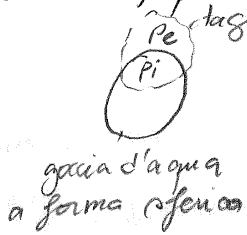 tag
Pe
Pi
goccia d'acqua
a forma sferica